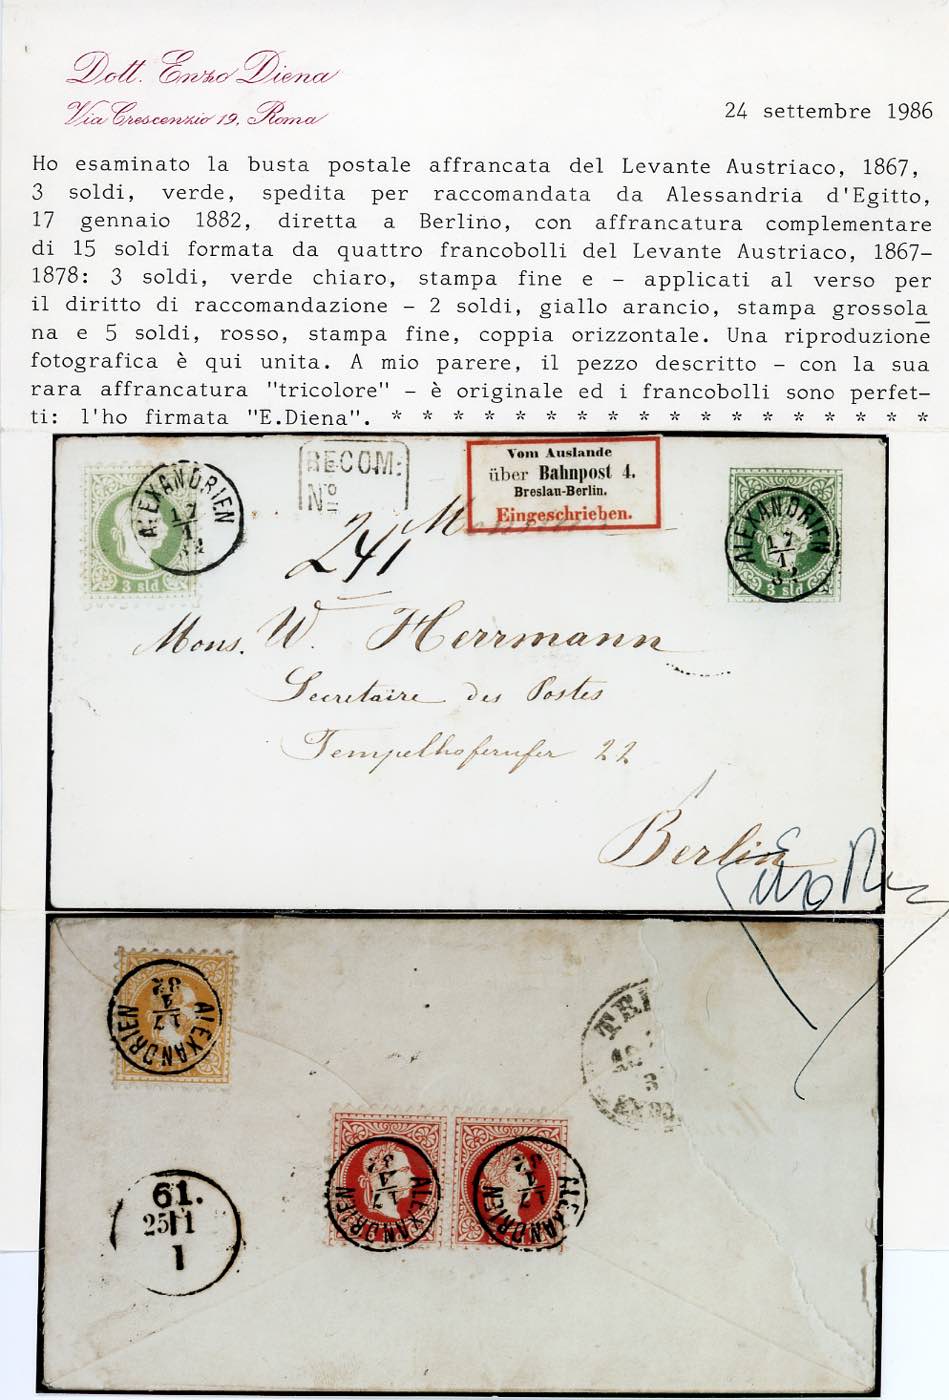 Dott. Enzo Diena
Via Crescenzio 19, Roma
24 settembre 1986
Ho esaminato la busta postale affrancata del Levante Austriaco, 1867,
3 soldi, verde, spedita per raccomandata da Alessandria d'Egitto,
17 gennaio 1882, diretta a Berlino, con affrancatura complementare
di 15 soldi formata da quattro francobolli del Levante Austriaco, 1867-
1878: 3 soldi, verde chiaro, stampa fine e - applicati al verso per
il diritto di raccomandazione - 2 soldi, giallo arancio, stampa grossola
na e 5 soldi, rosso, stampa fine, coppia orizzontale. Una riproduzione
fotografica è qui unita. A mio parere, il pezzo descritto - con la sua
rara affrancatura "tricolore" - è originale ed i francobolli sono perfet-
ti: l'ho firmata "E.Diena". * * * * * * * * * * * * * * * * * *
ALEXANDRIEN
17
1
82
3 sld
RECOM:
No
241
Vom Auslande
über Bahnpost 4.
Breslau-Berlin.
Eingeschrieben.
ALEXANDRIEN
17
1
82
3 sld
Mons. W. Herrmann
Secretaire des Postes
Tempelhoferufer 22
Berlin
ALEXANDRIEN
17
1
82
ALEXANDRIEN
17
1
82
ALEXANDRIEN
17
1
82
61.
25 1
1